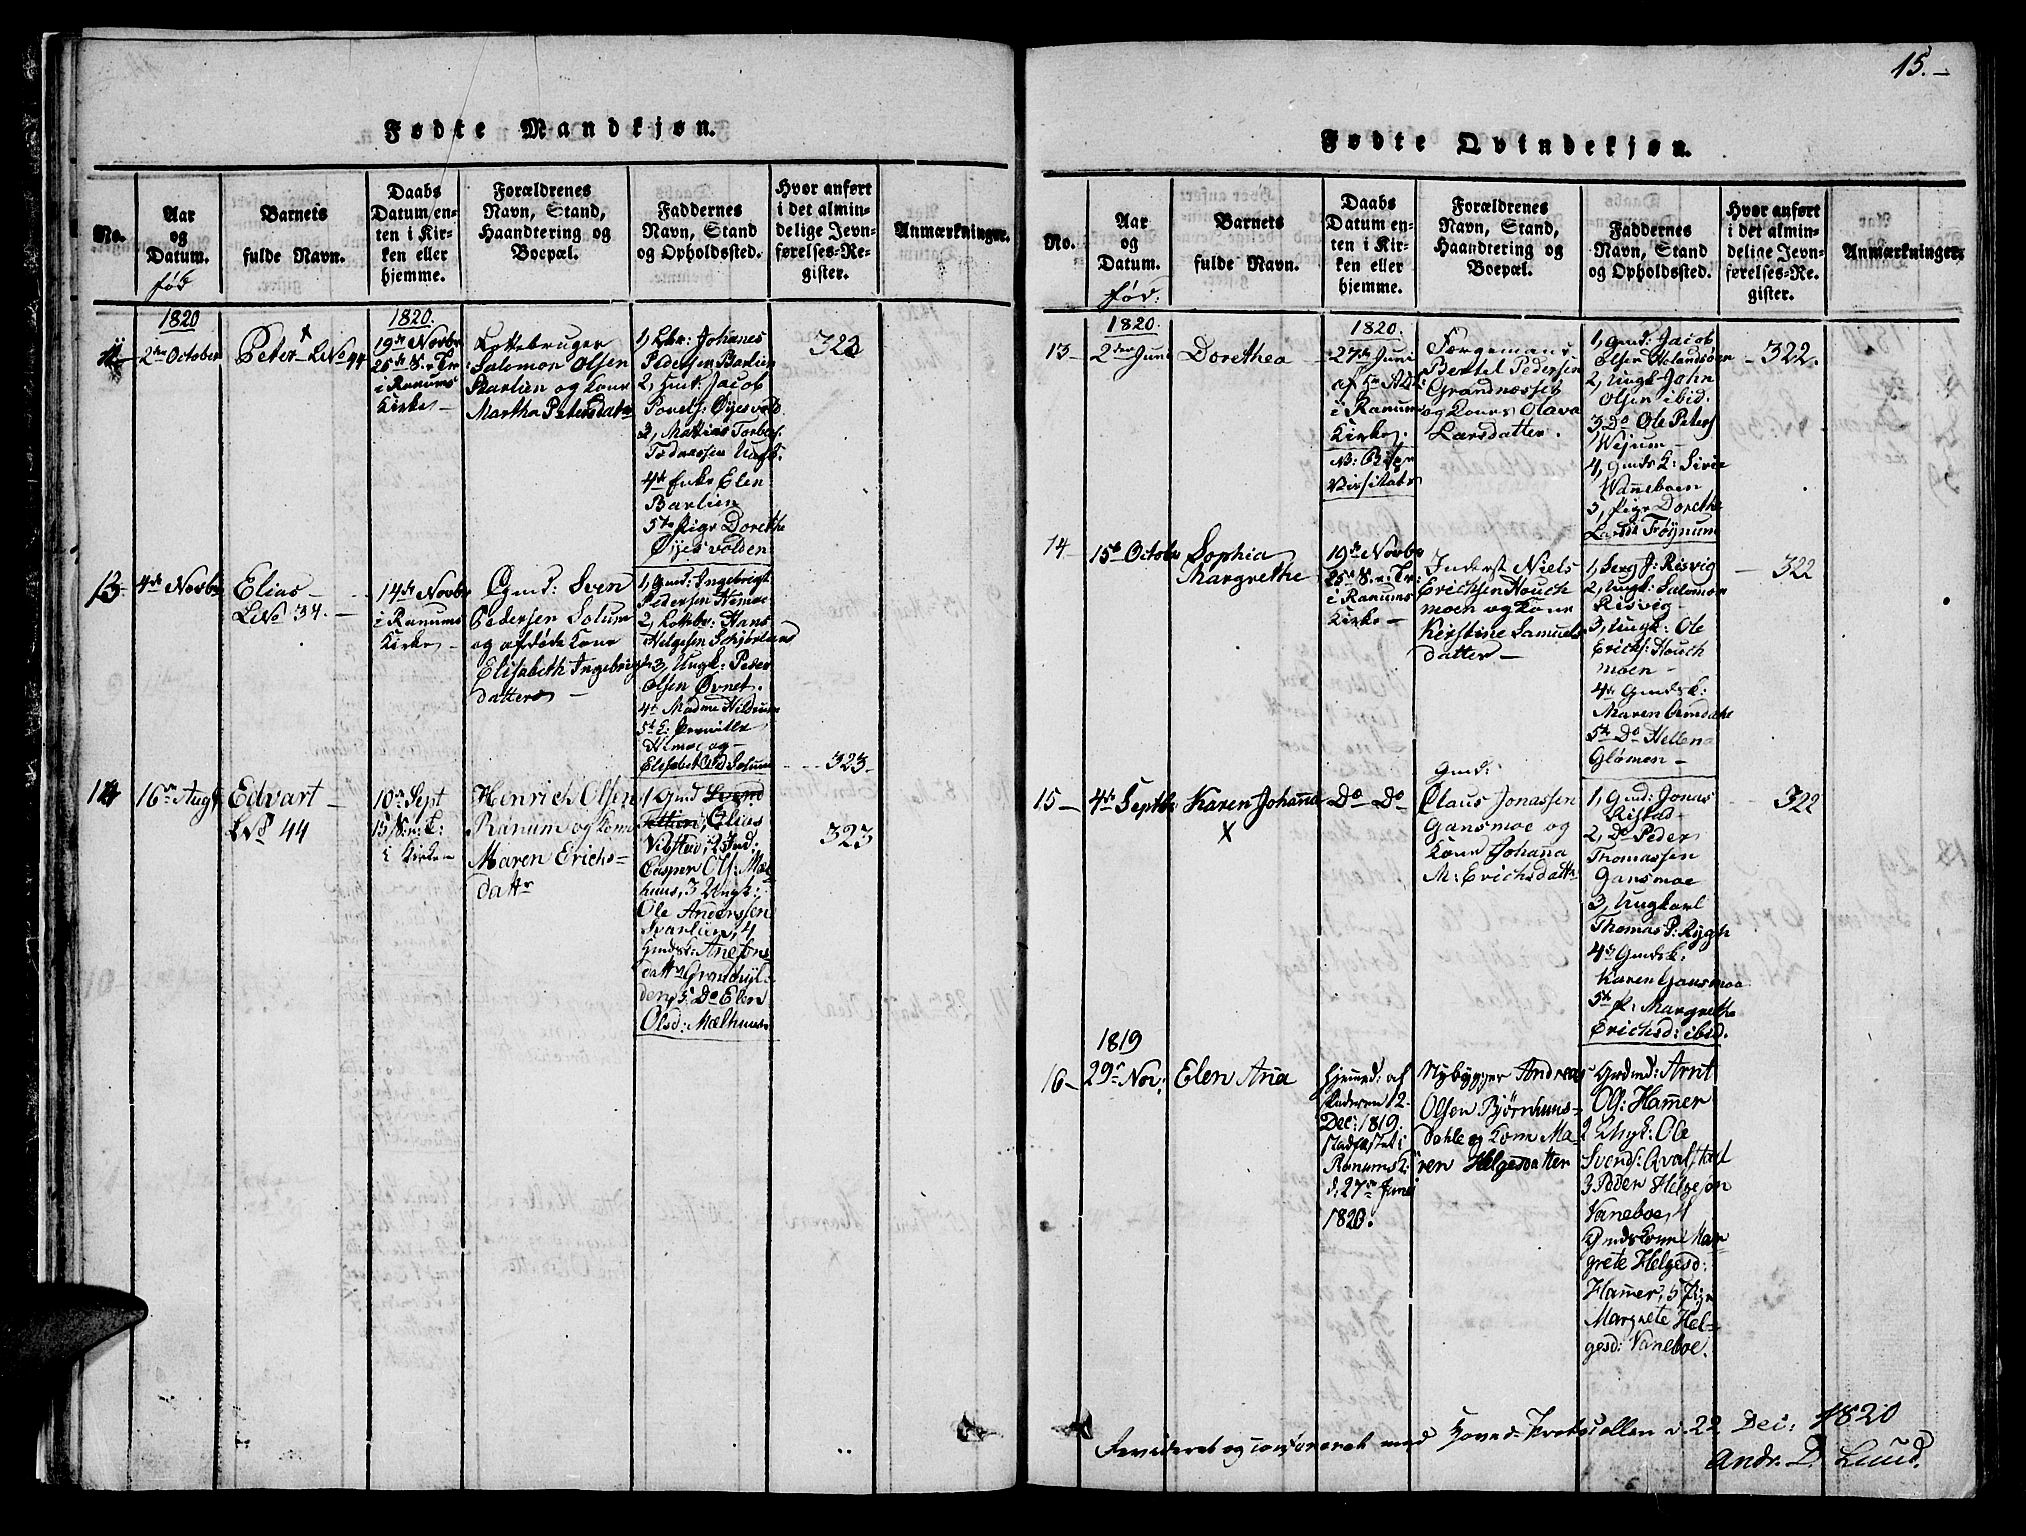 Fødte Mandkjøn.
No.
Aar
og
Datum.
fød
Barnets
fulde Navn.
Daabs
Datum en-
ten i Kir-
ken eller
hjemme.
Forældrenes
Navn, Stand,
Haandtering og
Boepæl.
Faddernes
Navn, Stand
og Opholdssted.
Hvor anført
i det almin-
delige Jevn-
førelses-Re-
gister.
Anmærkninger.
1820
2den October
Peter
LNo 44
1820.
19de Novbr
25de S. e. Tr:
i Ranums
Kirke
Salomon Olsen
og Kone
Martha Petersdatr
1, Johanes
Pedersen Barlien
2, Jacob
Øyesvold
4de Enke Elen
Barlien
5te Pige Dorethe
Øyesvolden
323
13
4de Novbr
Elias
LNo 34.
14de Novbr
i Ranums
Kirke
Gmd: Sven
Pedersen Solum
og afdøde Kone
Elisabeth Ingebrigts
datter
1, Gmd: Ingebrigt
Pedersen Himoe
2, Hans
Helgesen
3, Ungk: Peder
Olsen Øvnet.
4de Madme Hildrum
Himoe og
Solum
323
14
16de Augt
Edvart
LNo 44
10de Sept
15 S. e. T:
i Kirken
Henrich Olsen
Ranum og Kone
Maren Erichs-
datr
1 Gmd
Elias
Vibstad, 2 Ind:
Casper Ols: Mæl-
huus, 3 Ungk:
Ole Anderssen
Svarlien, 4
Gmdsk: Ane
datr
5 Do Elen
Olsd: Mælhuus
323
15.
Fødte Qvindekjøn.
No.
Aar
og
Datum.
fød:
Barnets
fulde Navn.
Daabs
Datum en-
ten i Kir-
ken eller
hjemme.
Forældrenes
Navn, Stand,
Haandtering og
Boepæl.
Faddernes
Navn, Stand
og Opholdssted.
Hvor anført
i det almin-
delige Jevn-
førelses-Re-
gister.
Anmærkninger.
13
1820.
2den Juni
Dorethea
1820.
27de Juni
i Ranums
Kirke.
Færgemand
Bertel Pedersen
Grandnesset
og Kones Olava
Larsdatter.
1, Gmd: Jacob
Olsen
2, Ungk John
Olsen ibid.
3 Do Ole Peters
Wejum
4, Gmds K: Sirie
Wanneboen
5, Pige Dorethe
Larsdr Frøynum
322.
14
15de Octobr
Sophia
Margrethe
19de Novbr
25de S. e. Tr:
i Ranums
Kirke
Inderst Niels
Erichsen Houch
moen og Kone
Kirstine Samuels
datter
1, Serg J: Risvig
2, Ungk: Salomon
Risvig
3, Ungk: Ole
Erichs: Houch
moen
4de Gmdsk:
Maren
5te Do Hellena
Glømen
322
15
4de Septbr
Karen Johanna
Do Do
Gmd:
Claus Jonassen
Gansmoe og
Kone Johanna
M: Erichsdattr
1, Gmd: Jonas
Ristad
2, Do Peder
Thomassen
Gansmoe
3, Ungkarl
Thomas P: Rygh
4de Gmdsk.
Karen Gansmoe
5te P: Margrethe
Erichsd: ibid.
322
1819
16
29de Nov:
Elen Ana
hjemmed: af
Faderen 12
Dec: 1819.
stadfæstet i
Ranums K:
d: 27de Juni
1820.
Nybygger Andreas
Olsen Bjørnhuus-
dahl og Kone Ma-
ren Helgesdatter
Gmd: Arnt
Ols: Hammer
2 Ungk: Ole
Svends: Qvalstad
3 Peder Helgeson
Vaneboe, 4
Gmds Kone Mar-
grete Helgesd:
Hammer, 5 Pige
Margrete Hel-
gesd: Vaneboe.
Revideret og conformeret med Hoved-Protocollen d. 22 Dec: 1820
Andr. D. Lund.